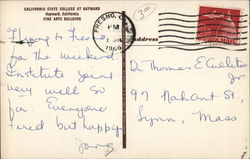 CALIFORNIA STATE COLLEGE AT HAYWARD
Hayward, California
FINE ARTS BUILDING
FRESNO, CALIF.
PM
1966
300
Address
Flying to Fresno,
for the weekend.
Institute going
very well so
far Everyone
tired but happy
Dr Thomas E
Jr
97 Nahant St
Lynn, Mass